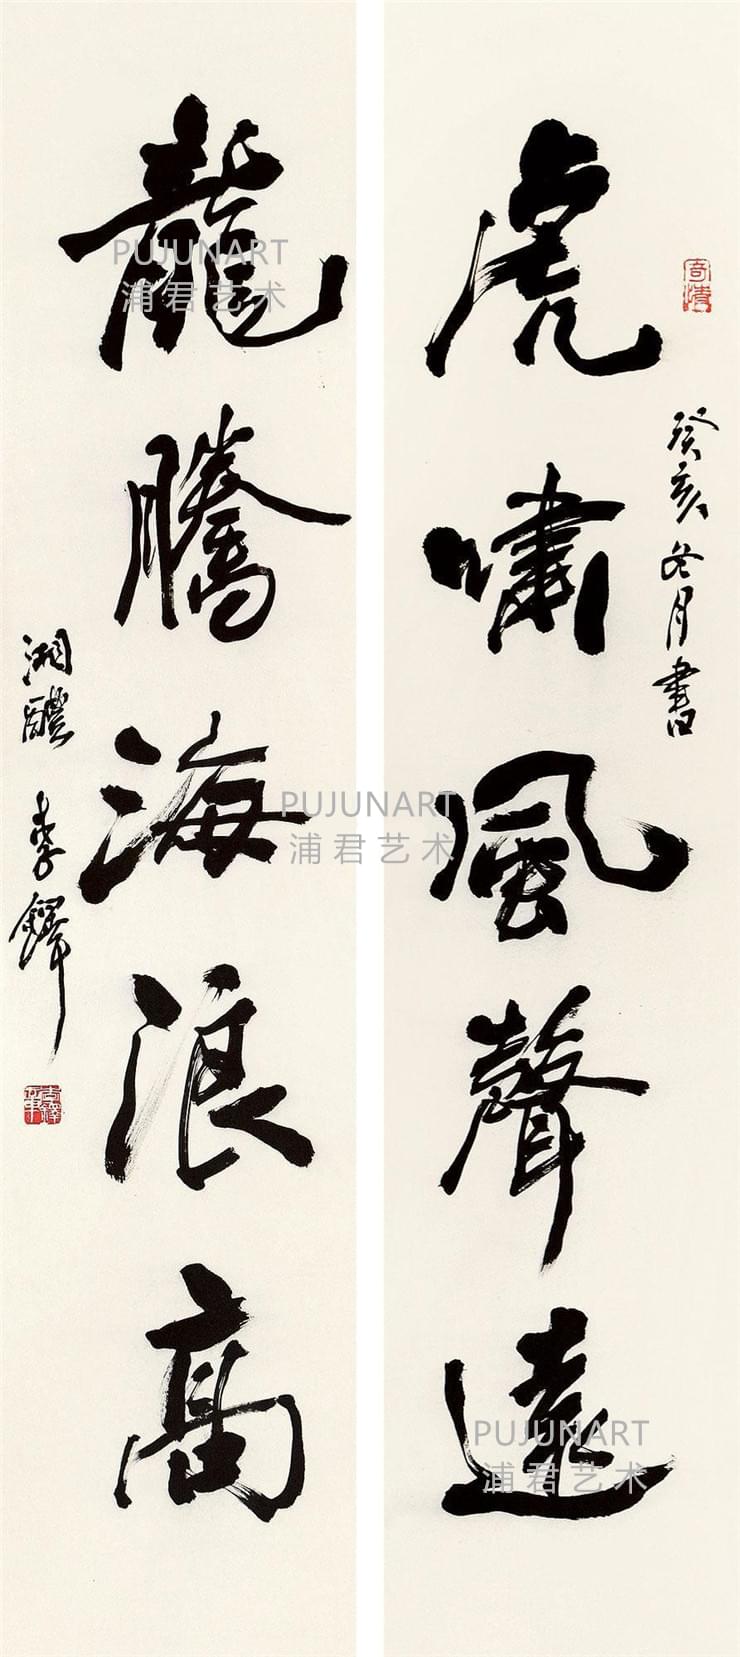 虎嘯風聲遠
癸亥冬月書
龍騰海浪高
湘醴 李鐸
PUJUNART
浦君艺术
PUJUNART
浦君艺术
PUJUNART
浦君艺术